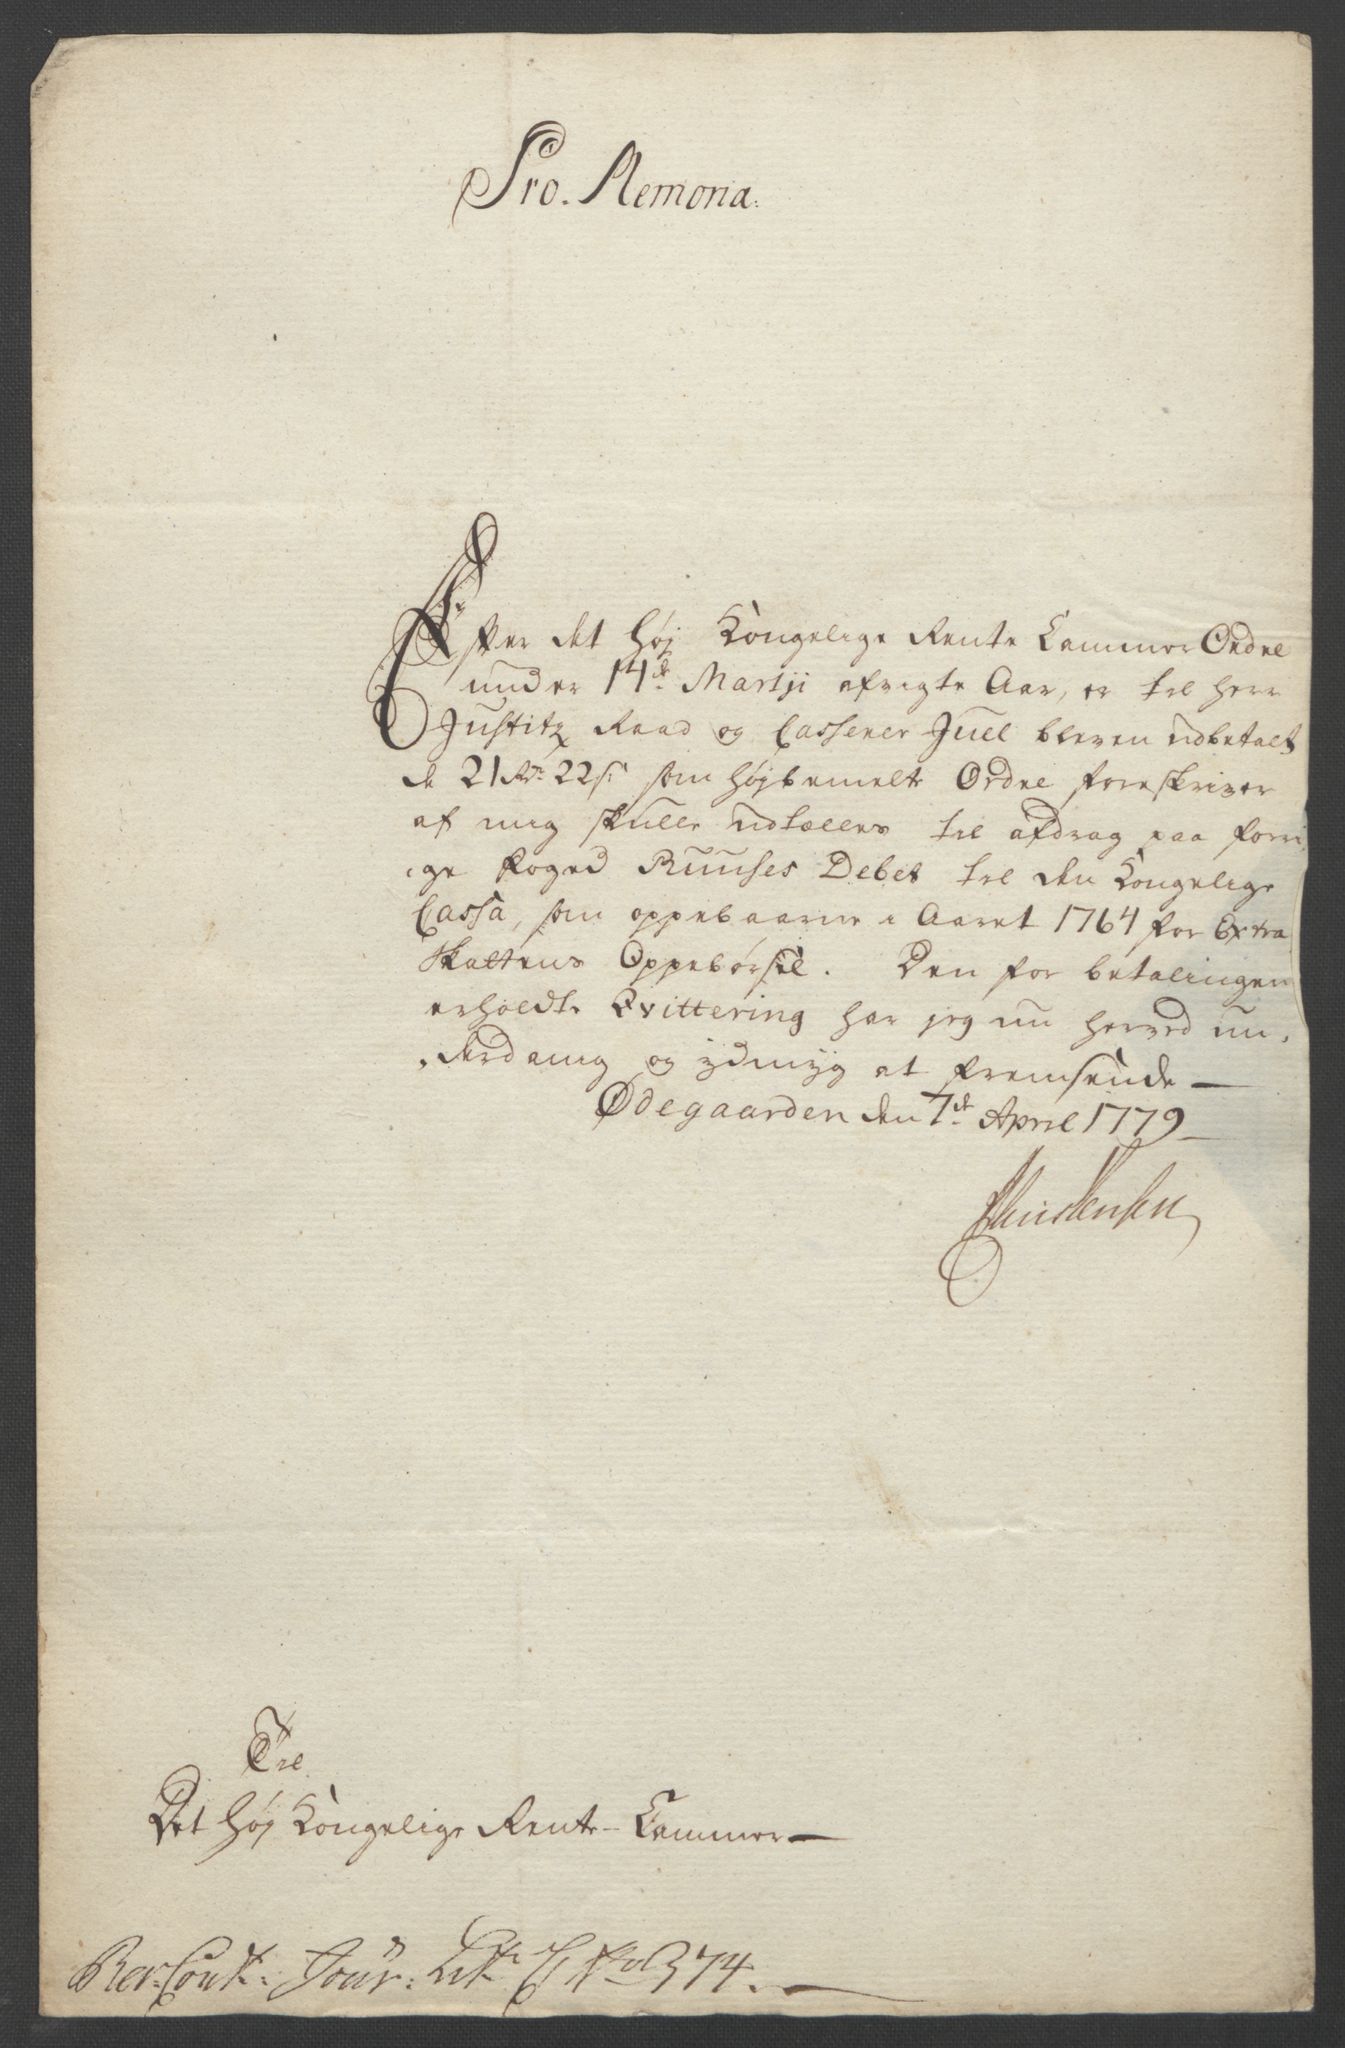 Pro. Memoria.
Efter det Høj Kongelige Rente Cammer Ordre
under 14de Martji afvigte Aar, er til herr
Justitz Raad og Casserer Juel bleven udbetalt
de 21 Rd. 22 s. som højbemelte Ordre foreskriver
af mig skulle udtælles til afdrag paa forri
ge foged Ruuses Debet til den Kongelige
Cassa, som oppebaarne i Aaret 1764 for Extra
Skattens Oppebørsel. Den for betalingen
erholdte Qvittering har jeg nu herved un-
derdanig og ydmyg at fremsende —
Ødegaarden den 7de April 1779
Til
Det Høj Kongelige Rente-Cammer —
Rev: Cont: Jour: Litr: No 374.